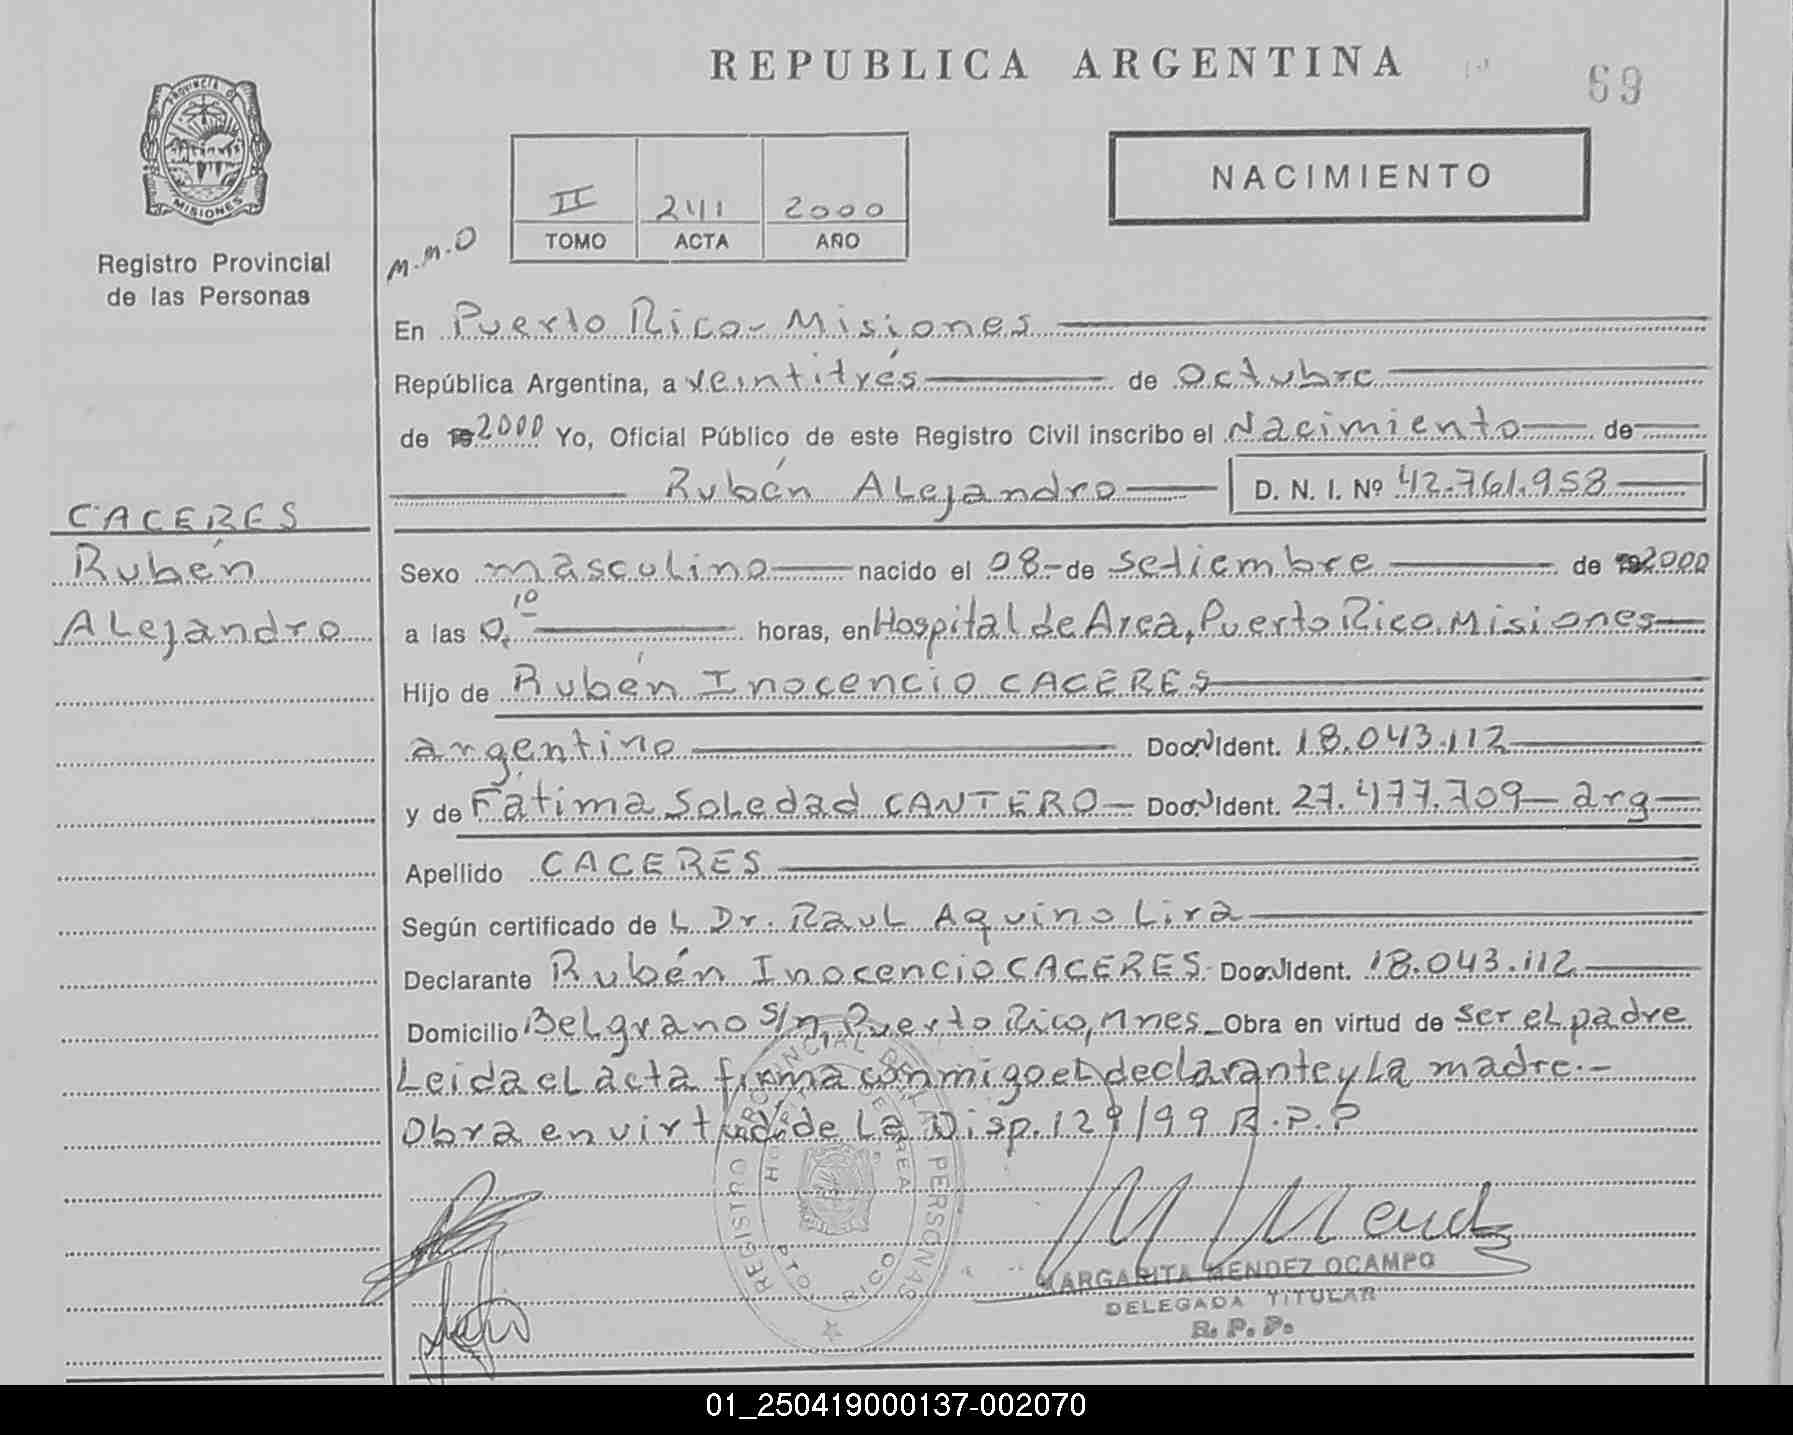 REPUBLICA ARGENTINA
69
PROVINCIA D
MISIONES
Registro Provincial
de las Personas
NACIMIENTO
II 241 2000
TOMO ACTA AÑO
M.M.O
En Puerto Rico - Misiones
República Argentina, a veintitrés de Octubre
de 2000 Yo, Oficial Público de este Registro Civil inscribo el Nacimiento de
Rubén Alejandro D. N. I. Nº 42.761.958
CACERES
Rubén
Alejandro
Sexo masculino nacido el 08- de Setiembre de 2000
a las 0,10 horas, en Hospital de Area, Puerto Rico. Misiones
Hijo de Rubén Inocencio CACERES
argentino Doc. Ident. 18.043.112
y de Fátima Soledad CANTERO Doc. Ident. 27.477.709 - arg
Apellido CACERES
Según certificado de L Dr. Raul Aquino Lira
Declarante Rubén Inocencio CACERES Doc. Ident. 18.043.112
Domicilio Belgrano S/n, Puerto Rico, Mnes. Obra en virtud de ser el padre
Leida el acta firma conmigo el declarante y La madre.-
Obra en virtud de La Disp. 129/99 R.P.P
REGISTRO PROVINCIAL DE LAS PERSONAS
HOSPITAL DE AREA
PTO RICO
MARGARITA MENDEZ OCAMPO
DELEGADA TITULAR
R. P. P.
01_250419000137-002070